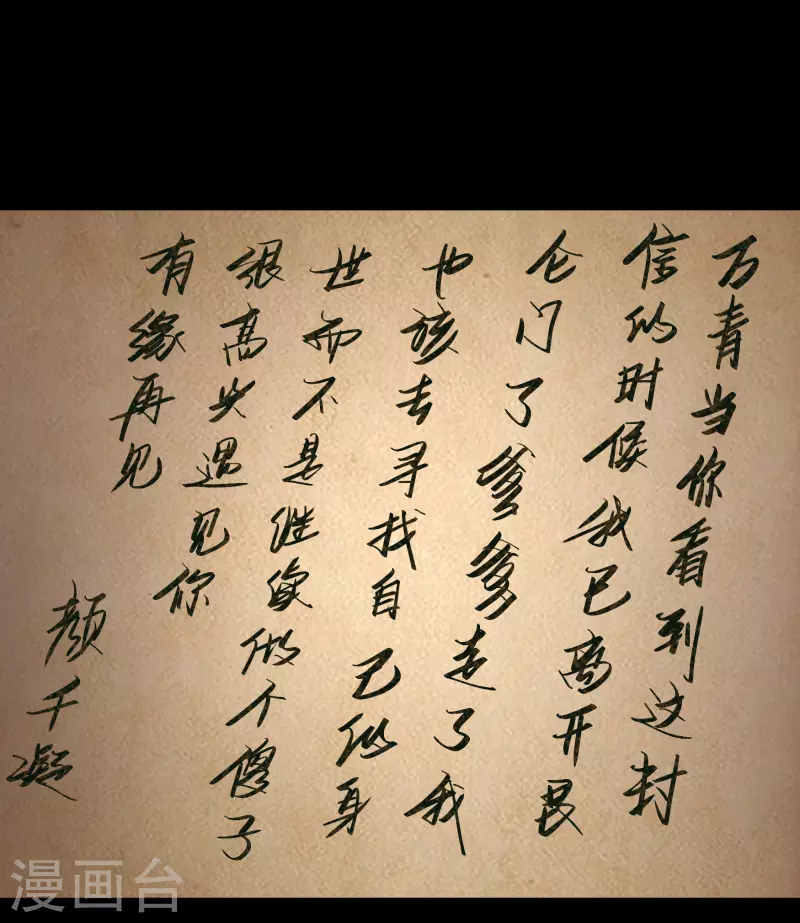 万青当你看到这封
信的时候我已离开昆
仑门了爹爹走了我
也该去寻找自己的身
世而不是继续做个傻子
很高兴遇见你
有缘再见
颜千凝
漫画台